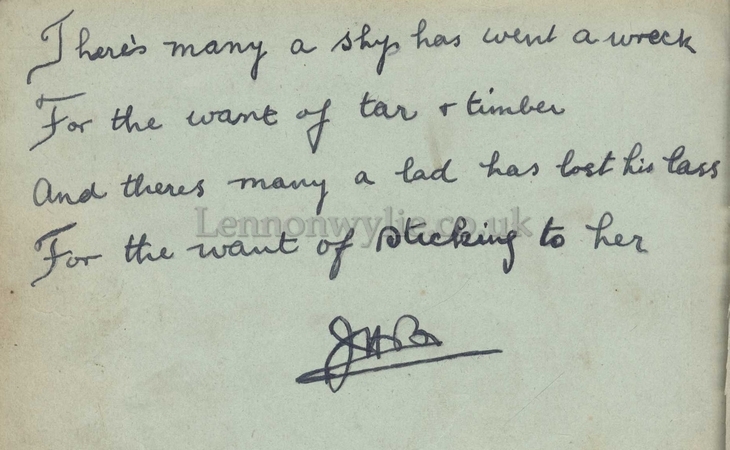 There's many a ship has went a wreck
For the want of tar + timber
And theres many a lad has lost his lass
Lennonwylie.co.uk
For the want of sticking to her